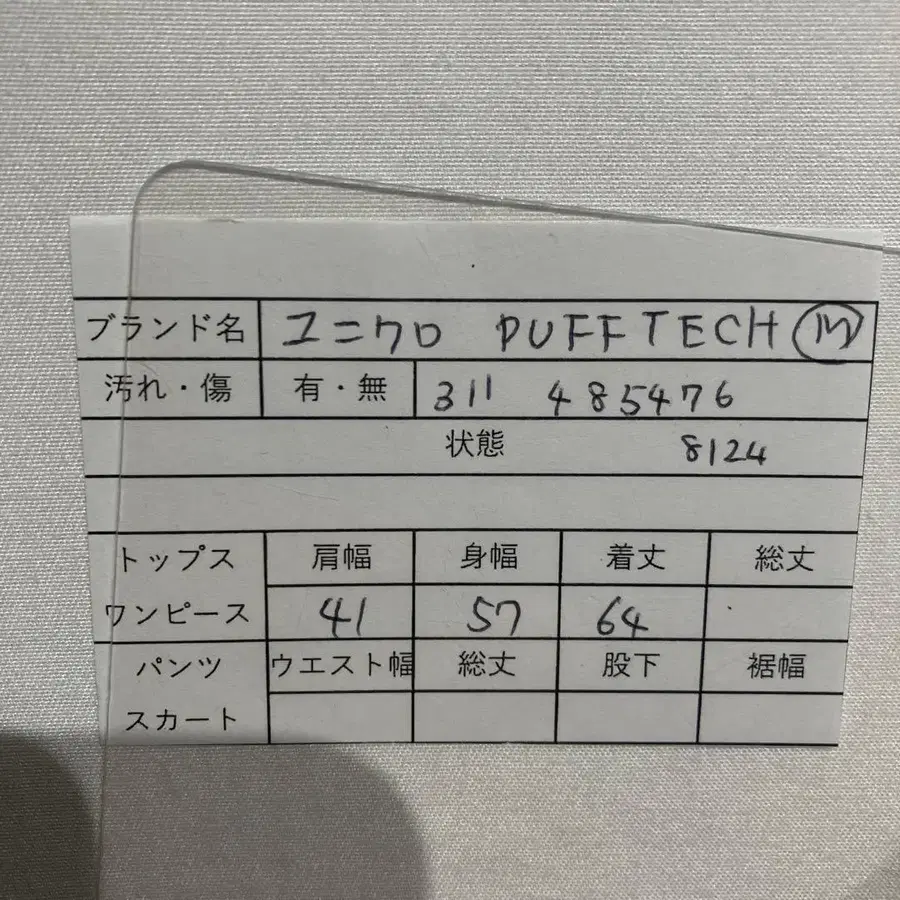 ブランド名 ユニクロ PUFFTECH M
汚れ・傷 有・無 311 485476
状態 8124
トップス 肩幅 身幅 着丈 総丈
ワンピース 41 57 64
パンツ ウエスト幅 総丈 股下 裾幅
スカート